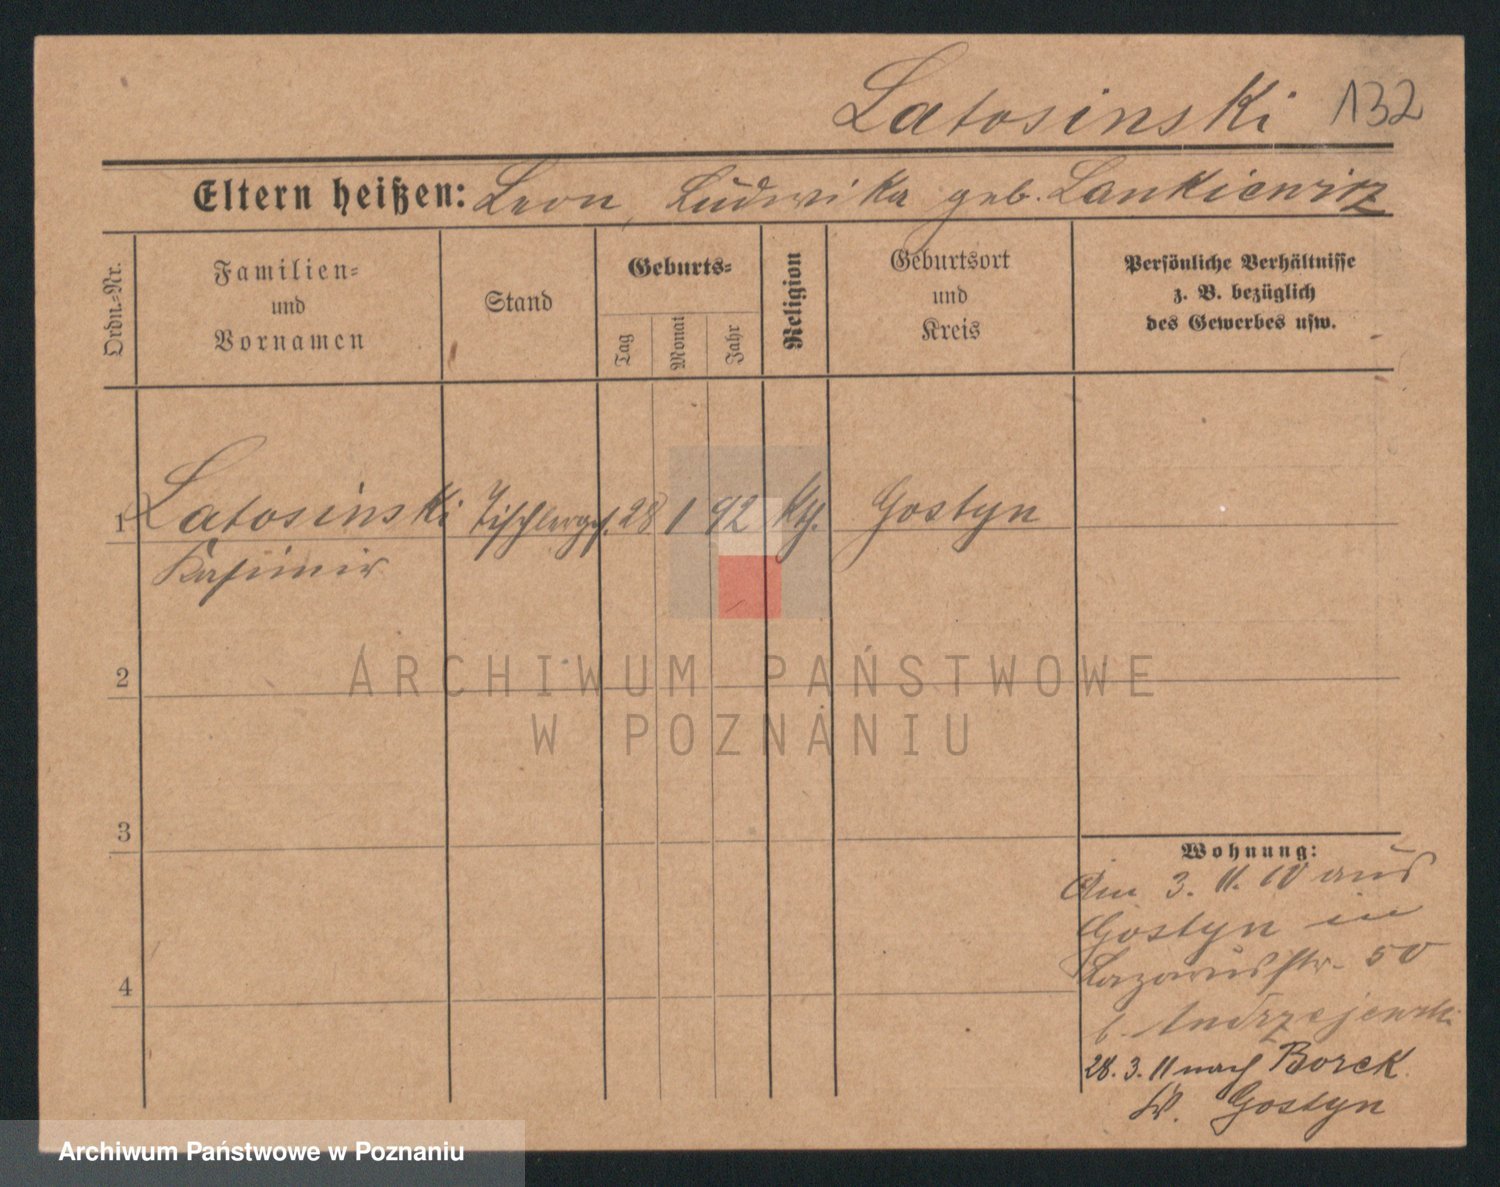 Latosinski 132
Eltern heißen: Leon, Ludwika geb. Lankiewicz
Ordn.-Nr.
Familien-
und
Vornamen
Stand
Geburts-
Tag
Monat
Jahr
Religion
Geburtsort
und
Kreis
Persönliche Verhältnisse
z. B. bezüglich
des Gewerbes usw.
1 Latosinski Tischlerges. 28 1 92 kth. Gostyn
Kasimir
2
3
4
Wohnung:
Am 3. 11. 10 aus
Gostyn in
Lazarusstr. 50
b. Andrzejewski
28. 3. 11 nach Borek
Kr. Gostyn
ARCHIWUM PAŃSTWOWE
W POZNANIU
Archiwum Państwowe w Poznaniu